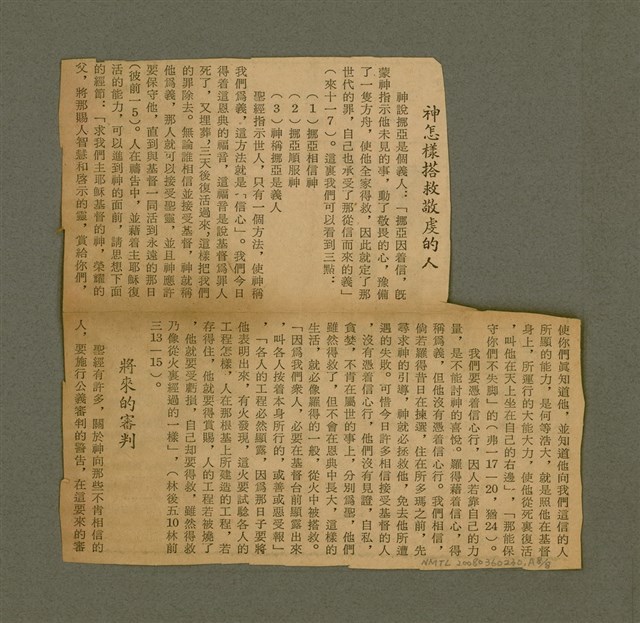 神怎樣搭救敬虔的人
神說挪亞是個義人：「挪亞因着信，旣
蒙神指示他未見的事，動了敬畏的心，豫備
了一隻方舟，使他全家得救，因此就定了那
世代的罪，自己也承受了那從信而來的義」
（來十一7）。這裏我們可以看到三點：
（1）挪亞相信神
（2）挪亞順服神
（3）神稱挪亞是義人
聖經指示世人，只有一個方法，使神稱
我們爲義，這方法就是：「信心」。我們今日
得着這恩典的福音，這福音是說基督爲罪人
死了，又埋葬，三天後復活過來，這樣把我們
的罪除去。無論誰相信並接受基督，神就稱
他爲義，那人就可以接受聖靈，並且神應許
要保守他，直到與基督一同活到永遠的那日
（彼前一5）。人在禱告中，並藉着主耶穌復
活的能力，可以進到神的面前，請思想下面
的經節：「求我們主耶穌基督的神，榮耀的
父，將那賜人智慧和啓示的靈，賞給你們，
使你們眞知道他，並知道他向我們這信的人
所顯的能力，是何等浩大，就是照他在基督
身上，所運行的大能大力，使他從死裏復活
，叫他在天上坐在自己的右邊」，「那能保
守你們不失脚」的（弗一17－20，猶24）。
我們要憑着信心行，因人若靠自己的力
量，是不能討神的喜悅。羅得藉着信心，得
稱爲義，但他沒有憑着信心行。我們相信，
倘若羅得昔日在揀選，住在所多瑪之前，先
尋求神的引導，神就必拯救他，免去他所遭
遇的失敗。可惜今日許多相信接受基督的人
，沒有憑着信心行，他們沒有見證，自私，
貪婪，不肯在屬世的事上，分別爲聖，他們
雖然得救了，但不會在恩典中長大，這樣的
生活，就必像羅得的一般，從火中被搭救。
「因爲我們衆人，必要在基督台前顯露出來
，叫各人按着本身所行的，或善或惡受報」
，「各人的工程必然顯露，因爲那日子要將
他表明出來，有火發現，這火要試騐各人的
工程怎樣，人在那根基上所建造的工程，若
存得住，他就要得賞賜，人的工程若被燒了
，他就要受虧損，自己却要得救，雖然得救
乃像從火裏經過的一樣」，（林後五10林前
三13－15）。
將來的審判
聖經有許多，關於神向那些不肯相信的
人，要施行公義審判的警告，在這要來的審
NMTL 20080360230.